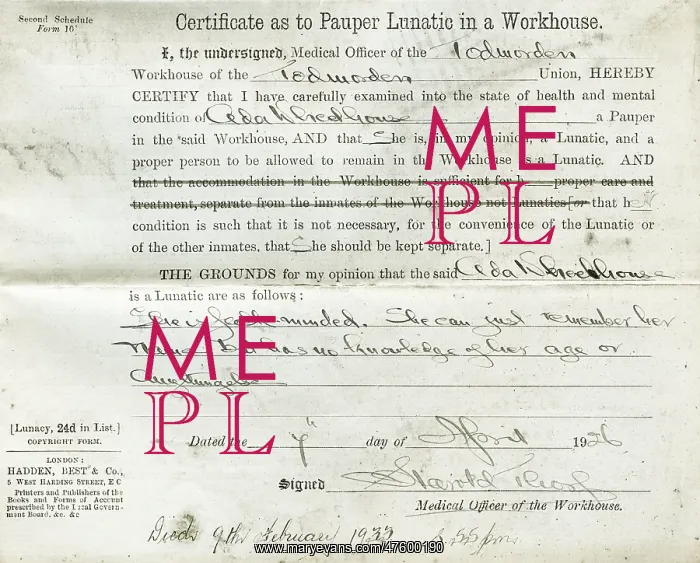 Second Schedule
Form 10
Certificate as to Pauper Lunatic in a Workhouse.
I, the undersigned, Medical Officer of the Todmorden
Workhouse of the Todmorden Union, HEREBY
CERTIFY that I have carefully examined into the state of health and mental
condition of Ada Wheelhouse a Pauper
in the said Workhouse, AND that She is, in my opinion, a Lunatic, and a
proper person to be allowed to remain in the Workhouse as a Lunatic. AND
that the accommodation in the Workhouse is sufficient for h proper care and
treatment, separate from the inmates of the Workhouse not Lunatics [or that her
condition is such that it is not necessary, for the convenience of the Lunatic or
of the other inmates, that She should be kept separate.]
THE GROUNDS for my opinion that the said Ada Wheelhouse
is a Lunatic are as follows:
She is feeble-minded. She can just remember her
name But has no knowledge of her age or
ME
PL
ME
PL
[Lunacy, 24d in List.]
COPYRIGHT FORM.
LONDON:
HADDEN, BEST & Co.,
5 WEST HARDING STREET, E C
Printers and Publishers of the
Books and Forms of Account
prescribed by the Local Govern-
ment Board, &c. &c
Dated the 7" day of April 1926
Signed
Medical Officer of the Workhouse.
Died 9th February 1933 pm.
www.maryevans.com/47600190